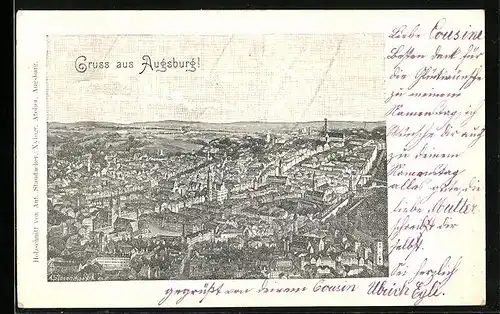 Gruss aus Augsburg!
Holzschnitt von Ant. Staudacher, Xylogr. Atelier, Augsburg.
Liebe Cousine
Besten Dank für
die Glückwünsche
zu meinem
Namenstag, ich
wünsche dir auch
zu deinem
Namenstag
alles gute, die
liebe Mutter
schreibt dir
selbst.
Sei herzlich
gegrüßt von deinem Cousin Ulrich Egli.